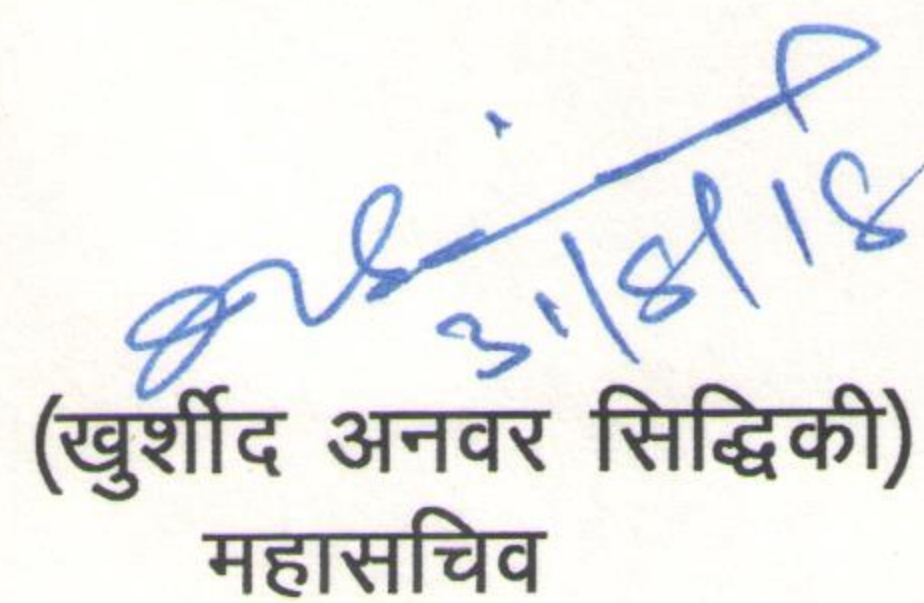 31/8/18
(खुर्शीद अनवर सिद्धिकी)
महासचिव